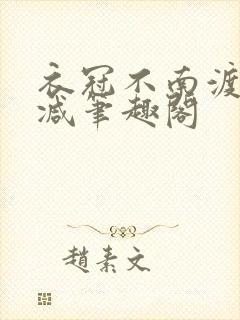 衣冠不南渡
减筆趣閣
趙素文